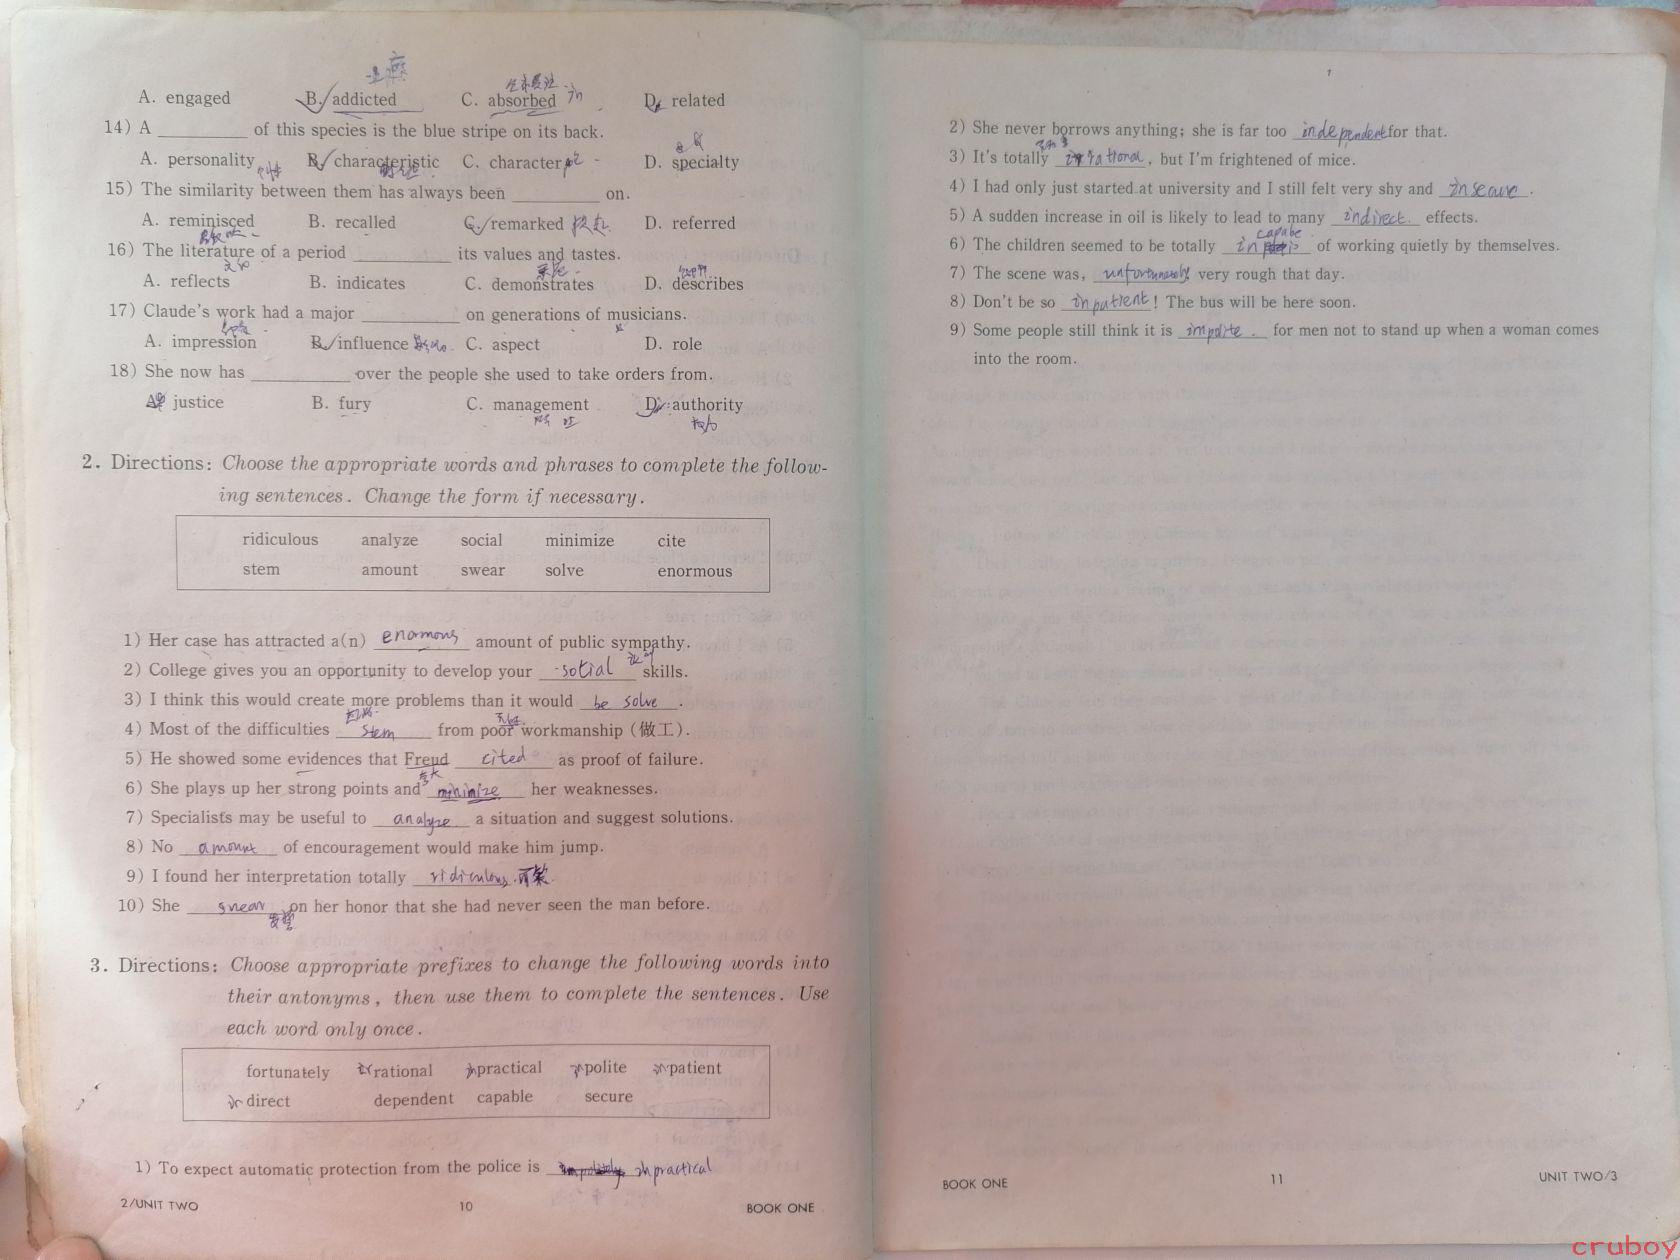 上瘾
A. engaged B. addicted C. absorbed in D. related
14) A ________ of this species is the blue stripe on its back.
A. personality B. characteristic C. character D. specialty
15) The similarity between them has always been ________ on.
A. reminisced B. recalled C. remarked D. referred
16) The literature of a period ________ its values and tastes.
A. reflects B. indicates C. demonstrates D. describes
17) Claude's work had a major ________ on generations of musicians.
A. impression B. influence C. aspect D. role
18) She now has ________ over the people she used to take orders from.
A. justice B. fury C. management D. authority
权力
2. Directions: Choose the appropriate words and phrases to complete the follow-
ing sentences. Change the form if necessary.
ridiculous analyze social minimize cite
stem amount swear solve enormous
1) Her case has attracted a(n) enormous amount of public sympathy.
2) College gives you an opportunity to develop your sotial skills.
3) I think this would create more problems than it would be solve.
4) Most of the difficulties stem from poor workmanship (做工).
5) He showed some evidences that Freud cited as proof of failure.
6) She plays up her strong points and minimize her weaknesses.
7) Specialists may be useful to analyze a situation and suggest solutions.
8) No amount of encouragement would make him jump.
9) I found her interpretation totally ridiculous. 可笑
10) She swear on her honor that she had never seen the man before.
发誓
3. Directions: Choose appropriate prefixes to change the following words into
their antonyms, then use them to complete the sentences. Use
each word only once.
fortunately ir rational in practical in polite in patient
in direct dependent capable secure
1) To expect automatic protection from the police is inpractical
2/UNIT TWO 10 BOOK ONE
2) She never borrows anything; she is far too independent for that.
3) It's totally irrational, but I'm frightened of mice.
4) I had only just started at university and I still felt very shy and insecure.
5) A sudden increase in oil is likely to lead to many indirect effects.
capabe
6) The children seemed to be totally in of working quietly by themselves.
7) The scene was, unfortunately very rough that day.
8) Don't be so inpatient! The bus will be here soon.
9) Some people still think it is impolite for men not to stand up when a woman comes
into the room.
BOOK ONE 11 UNIT TWO/3
cruboy